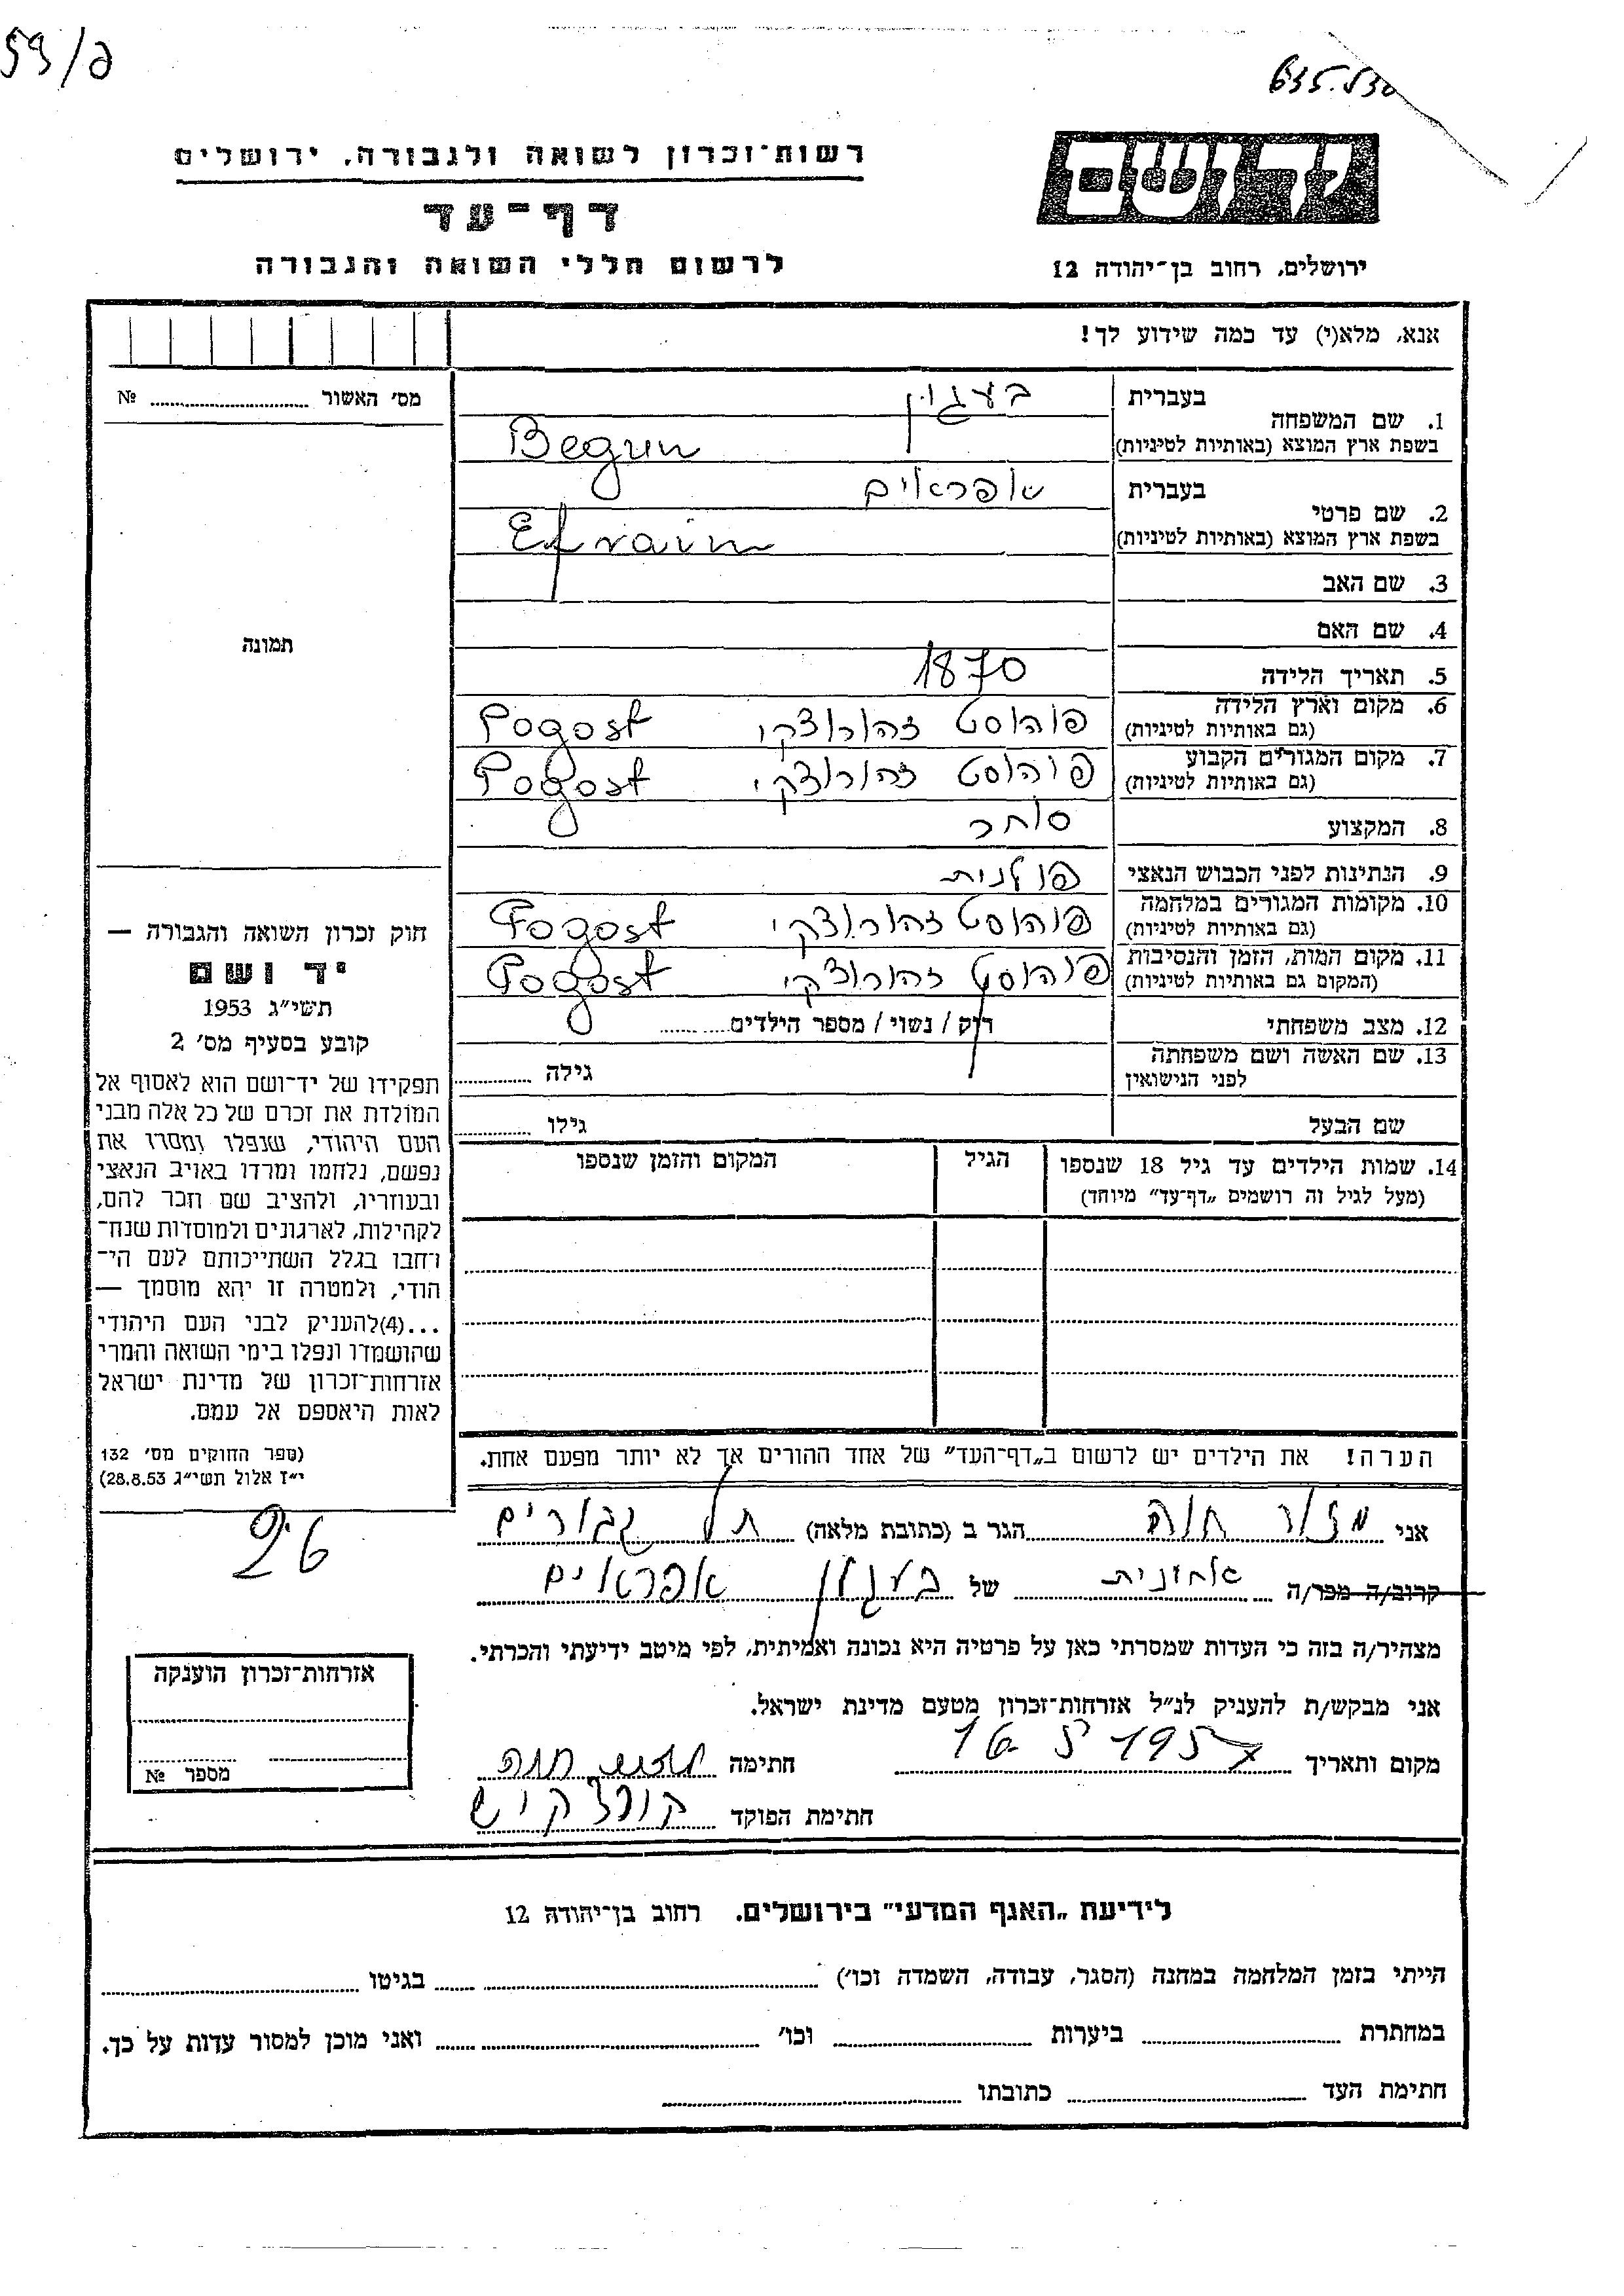 59/ס
635.530
יד ושם
רשות־זכרון לשואה ולגבורה, ירושלים
דף-עד
לרשום חללי השואה והגבורה
ירושלים, רחוב בן־יהודה 12
אנא, מלא(י) עד כמה שידוע לך!
מס׳ האשור № 
1. שם המשפחה
בעברית בעגון
בשפת ארץ המוצא (באותיות לטיניות) Begun
2. שם פרטי
בעברית אפראים
בשפת ארץ המוצא (באותיות לטיניות) Efraim
3. שם האב
4. שם האם
תמונה
5. תאריך הלידה 1870
6. מקום וארץ הלידה פוהוסט זהורוצקי Pogost
(גם באותיות לטיניות)
7. מקום המגורים הקבוע פוהוסט זהורוצקי Pogost
(גם באותיות לטיניות)
8. המקצוע סוחר
9. הנתינות לפני הכבוש הנאצי פולנית
10. מקומות המגורים במלחמה פוהוסט זהורוצקי Pogost
(גם באותיות לטיניות)
11. מקום המות, הזמן והנסיבות פוהוסט זהורוצקי Pogost
(המקום גם באותיות לטיניות)
12. מצב משפחתי רוק / נשוי / מספר הילדים
13. שם האשה ושם משפחתה גילה
לפני הנישואין
שם הבעל גילו
14. שמות הילדים עד גיל 18 שנספו הגיל המקום והזמן שנספו
(מעל לגיל זה רושמים „דף־עד” מיוחד)
חוק זכרון השואה והגבורה —
יד ושם
תשי״ג 1953
קובע בסעיף מס׳ 2
תפקידו של יד־ושם הוא לאסוף אל
המולדת את זכרם של כל אלה מבני
העם היהודי, שנפלו ומסרו את
נפשם, נלחמו ומרדו באויב הנאצי
ובעוזריו, ולהציב שם וזכר להם,
לקהילות, לארגונים ולמוסדות שנח־
רחבו בגלל השתייכותם לעם הי־
הודי, ולמטרה זו יהא מוסמך —
...(4)להעניק לבני העם היהודי
שהושמדו ונפלו בימי השואה והמרי
אזרחות־זכרון של מדינת ישראל
לאות היאספם אל עמם.
(ספר החוקים מס׳ 132
י״ז אלול תשי״ג 28.8.53)
הערה! את הילדים יש לרשום ב„דף־העד” של אחד ההורים אך לא יותר מפעם אחת.
26
אני מזור חוה הגר ב (כתובת מלאה) תל גבורים
קרוב/ה מכר/ה אחינית של בעגון אפראים
מצהיר/ה בזה כי העדות שמסרתי כאן על פרטיה היא נכונה ואמיתית, לפי מיטב ידיעתי והכרתי.
אני מבקש/ת להעניק לנ״ל אזרחות־זכרון מטעם מדינת ישראל.
מקום ותאריך 16 5 1957 חתימה חוה
חתימת הפוקד
אזרחות־זכרון הוענקה
מספר №
לידיעת „האגף המדעי” בירושלים. רחוב בן־יהודה 12
הייתי בזמן המלחמה במחנה (הסגר, עבודה, השמדה וכו׳) בגיטו
במחתרת ביערות וכו׳ ואני מוכן למסור עדות על כך.
חתימת העד כתובתו